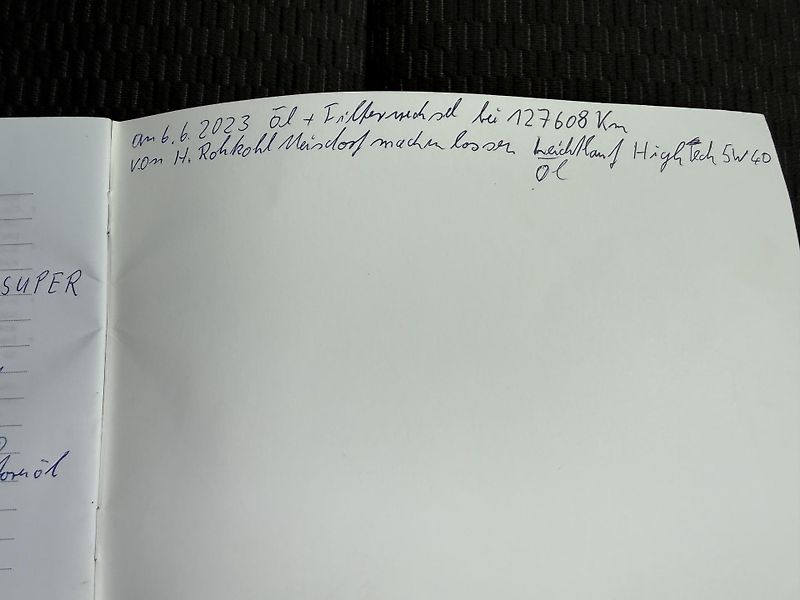 am 6.6.2023 Öl + Filterwechsel bei 127608 Km
von H. Rohkohl Meisdorf machen lassen Leichtlauf High Tech 5W40
Öl
SUPER